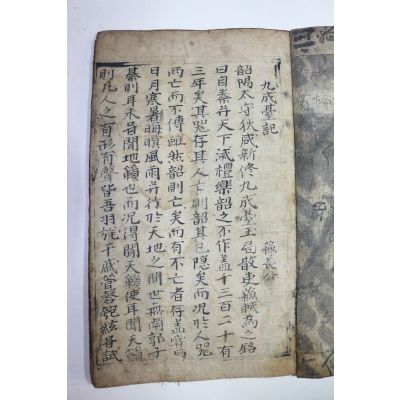 九成臺記
蘇長公
韶陽太守狄咸新修九成臺玉局散吏蘇軾為之銘
曰自秦并天下滅禮樂韶之不作盖千三百二十有
三年矣其器存其人亡則韶其已隱矣而况於人器
兩亡而不傳雖然韶則亡矣而有不亡者存盖嘗与
日月寒暑晦暝風雨并行於天地之間世無南郭子
綦則耳未嘗聞地籟也而况得聞天籟使耳聞天籟
則凡人之有形有聲皆吾羽旄干戚管磬匏絃嘗試